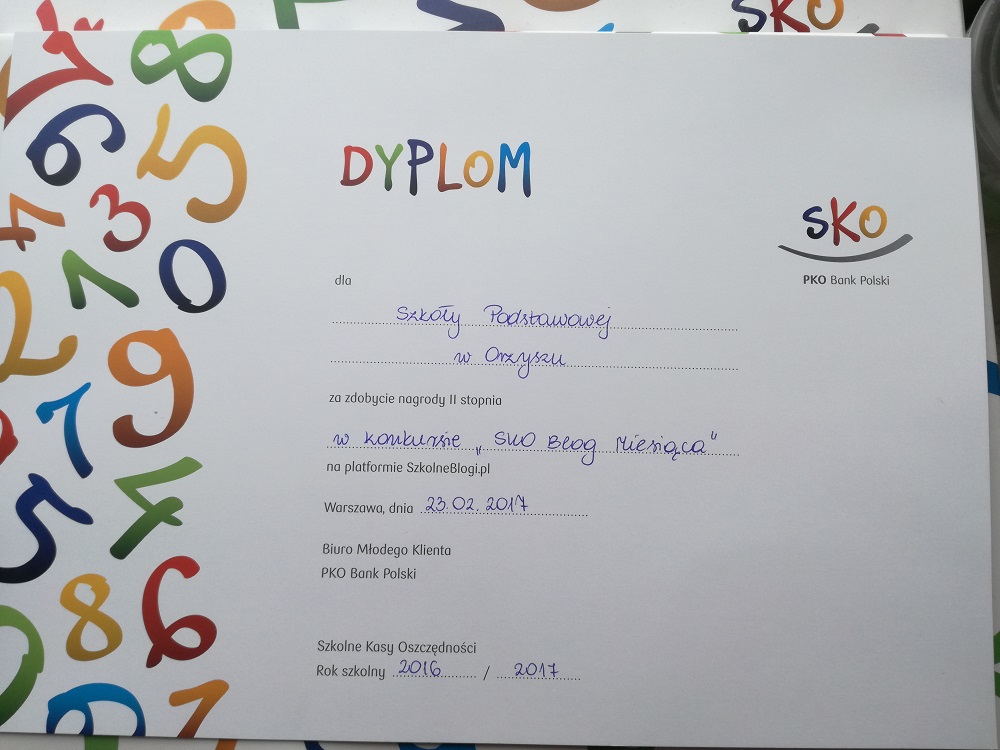 SKO
DYPLOM
SKO
PKO Bank Polski
dla
Szkoły Podstawowej
w Orzyszu
za zdobycie nagrody II stopnia
w konkursie „SKO Blog Miesiąca"
na platformie SzkolneBlogi.pl
Warszawa, dnia 23.02.2017
Biuro Młodego Klienta
PKO Bank Polski
Szkolne Kasy Oszczędności
Rok szkolny 2016 / 2017